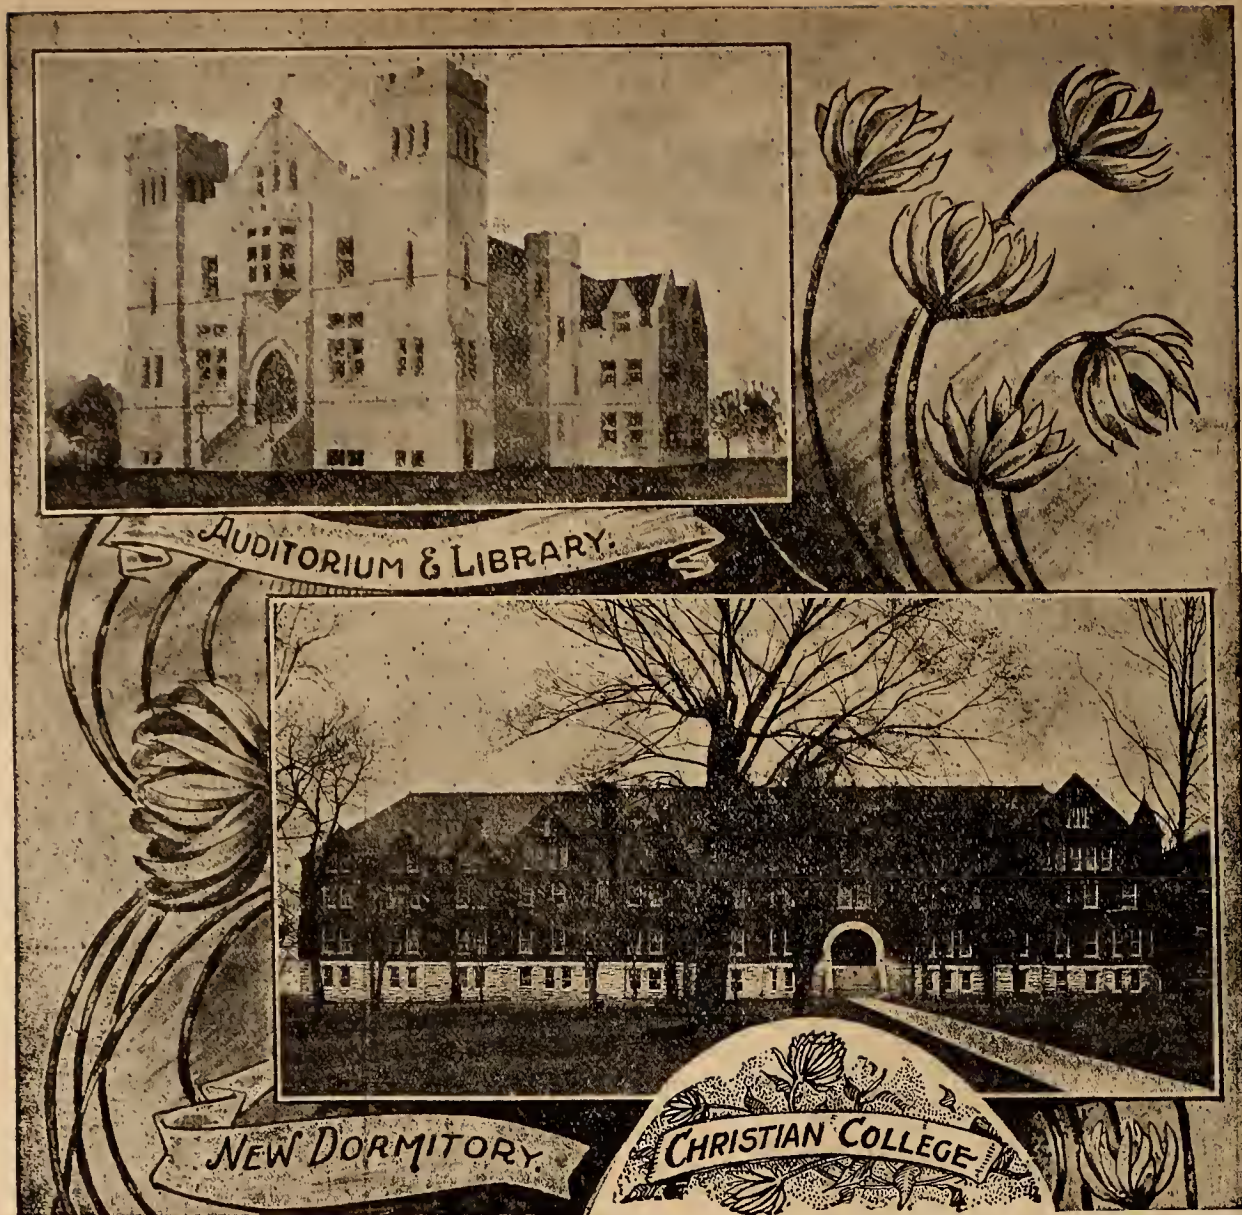 AUDITORIUM & LIBRARY.
NEW DORMITORY.
CHRISTIAN COLLEGE